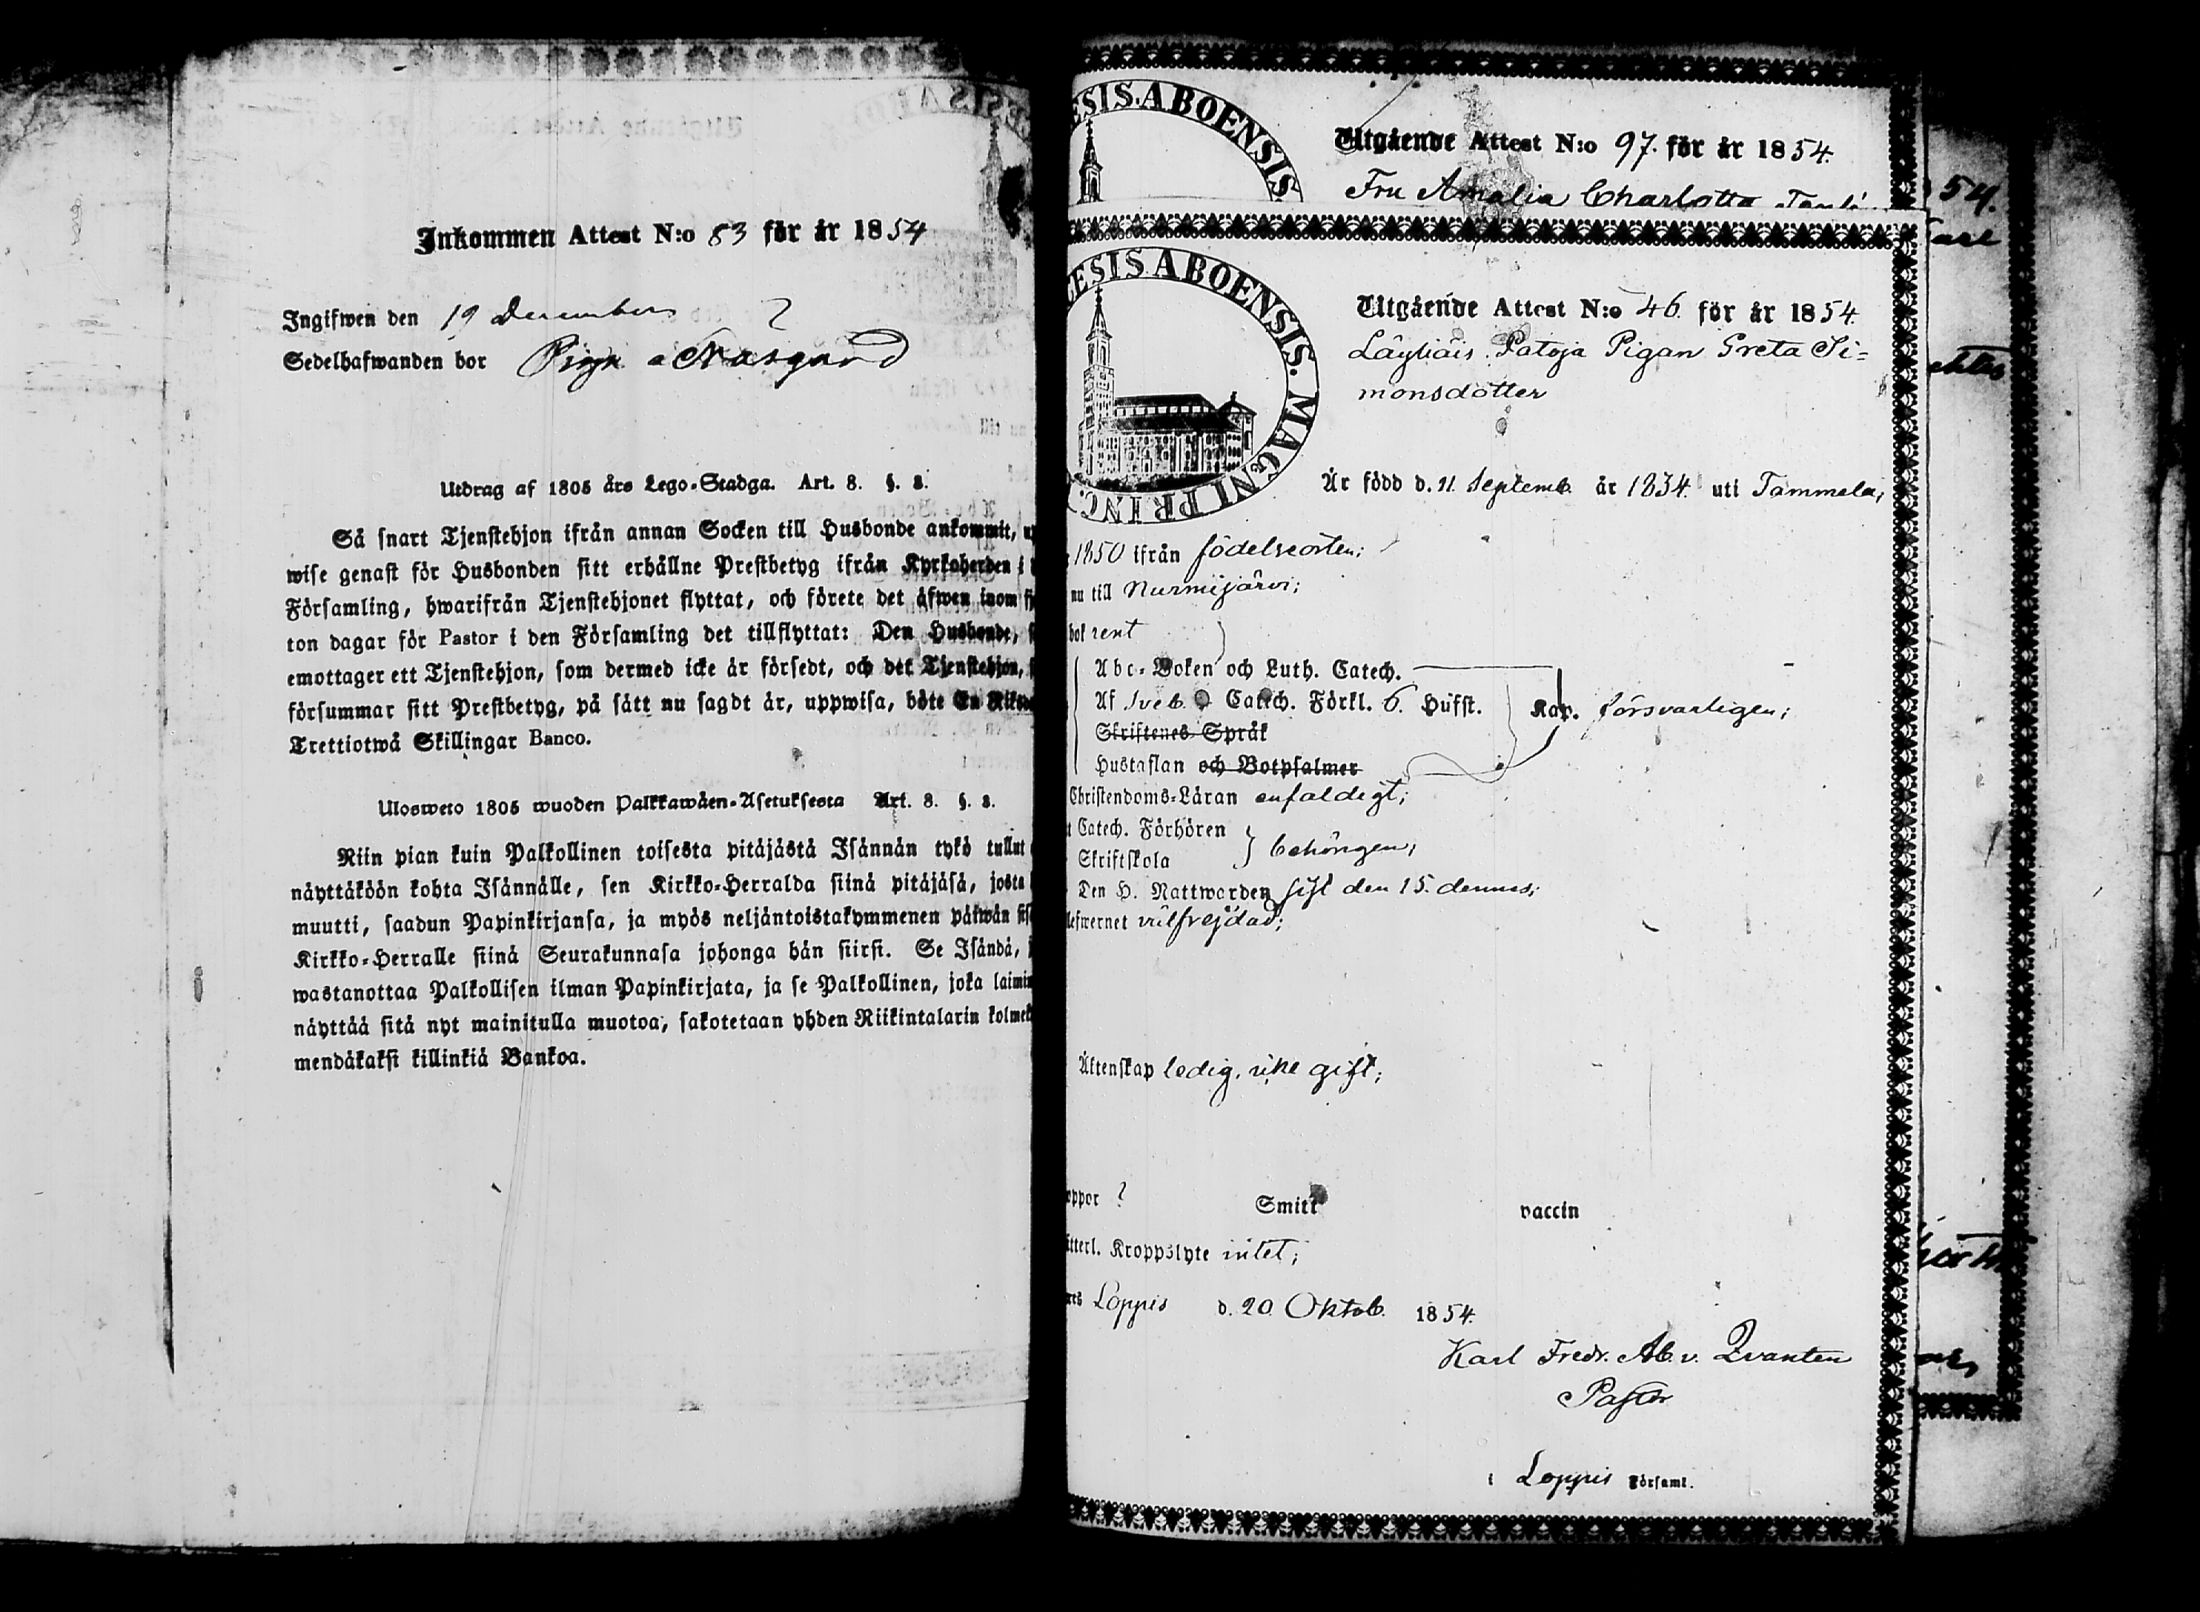 Inkommen Attest N:o 83 för år 1854
Ingifwen den 19 December
Sedelhafwanden bor
Utdrag af 1805 års Lego-Stadga. Art. 8. §. 2.
Så snart Tjenstehjon ifrån annan Socken till Husbonde ankommit,
wise genast för Husbonden sitt erhållne Prestbetyg ifrån Kyrkoherden i
Församling, hwarifrån Tjenstehjonet flyttat, och förete det äfwen inom
ton dagar för Pastor i den Församling det tillflyttat: Den Husbonde,
emottager ett Tjenstehjon, som dermed icke är försedt, och det Tjenstehjon,
försummar sitt Prestbetyg, på sätt nu sagdt är, uppwisa, böte En
Trettiotwå Skillingar Banco.
Ulosweto 1805 wuoden Palkkawäen-Asetuksesta Art. 8. §. 2.
Niin pian kuin Palkollinen toisesta pitäjästä Isännän tykö tullut
näyttäköön kohta Isännälle, sen Kirkko-Herralda siinä pitäjäsä, josta
muutti, saadun Papinkirjansa, ja myös neljäntoistakymmenen päiwän
Kirkko-Herralle siinä Seurakunnasa johonga hän siirsi. Se Isändä,
wastanottaa Palkollisen ilman Papinkirjata, ja se Palkollinen, joka
näyttää sitä nyt mainitulla muotoa, sakotetaan yhden Riikintalarin
mendäkaksi killinkiä Bankoa.
ESIS.ABOENSIS
Utgående Attest N:o 97. för år 1854.
Fru Amalia Charlotta
54.
ESIS ABOENSIS. MAGNI PRINC.
Utgående Attest N:o 46. för år 1854.
Läyliäis Patoja Pigan Greta Si=
monsdotter
Är född d. 11 Septemb. år 1834. uti Tammela,
1850 ifrån födelseorten;
nu till Nurmijärvi;
bok rent
Abc-Boken och Luth. Catech.
Af Sveb. Catech. Förkl. 6. Hufst. Kap. försvarligen;
Skriftenes Språk
Hustaflan och Botpsalmer
Christendoms-Läran enfaldigt;
Catech. Förhören
Skriftskola } behörigen;
Den H. Nattwarden sist den 15. dennes;
lefwernet välfrejdad;
Äktenskap ledig, icke gift;
oppor ? Smitt vaccin
Kroppslyte intet;
Loppis d. 20. Oktob. 1854.
Karl Fredr. Ab. v. Qvanten
Pastor
i Loppis Församl.